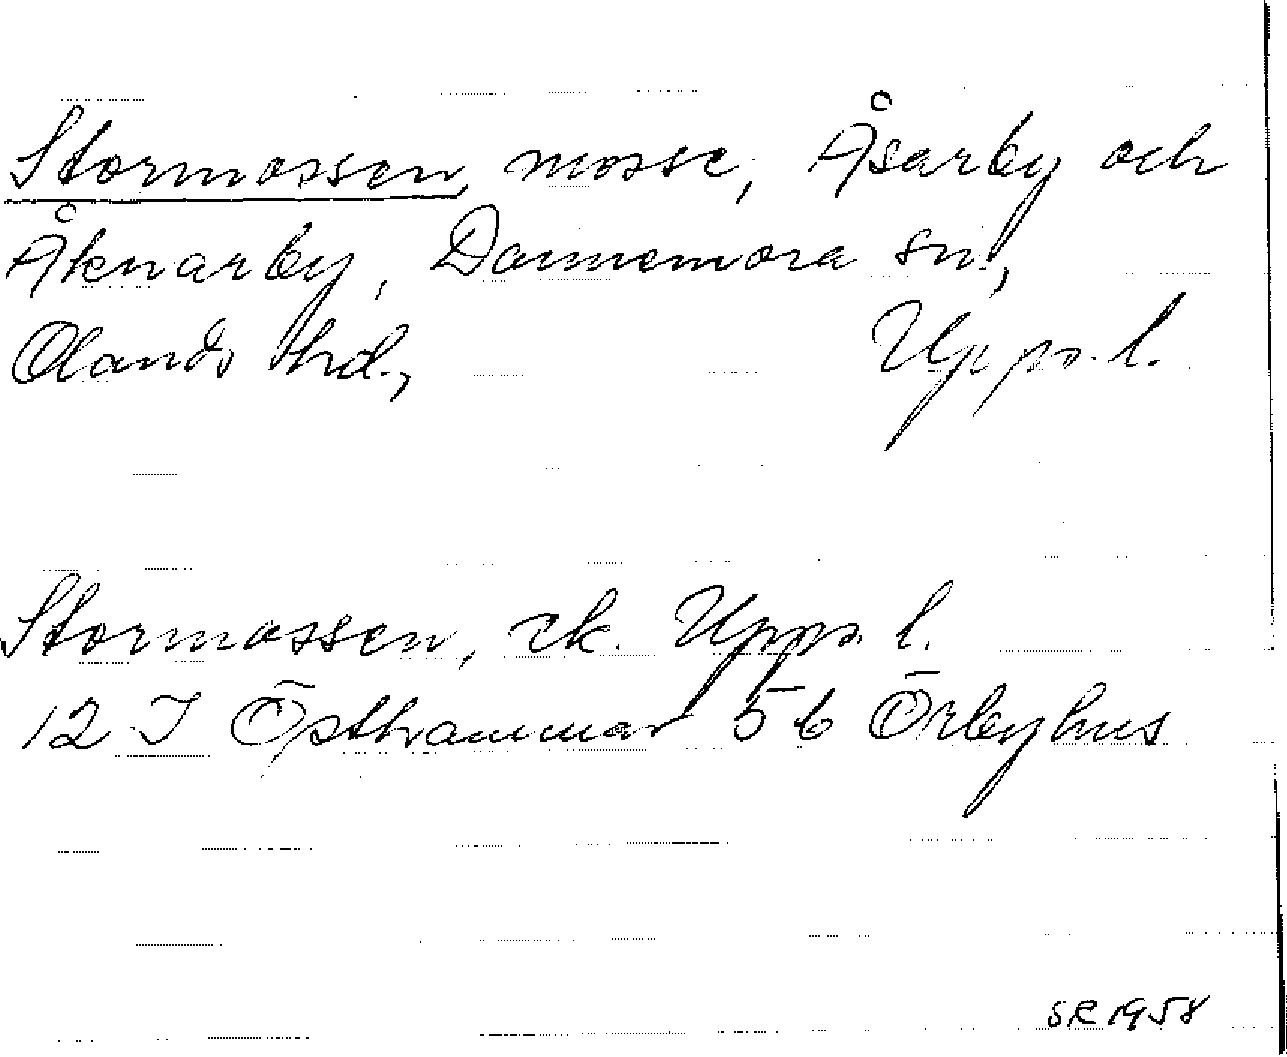 Stormossen, mosse, Åsarby och
Åknarby, Dannemora sn,
Olands hd., Upps. l.
Stormossen, ek. Upps. l.
12 I Östhammar 5 b Örbyhus
SR 1958